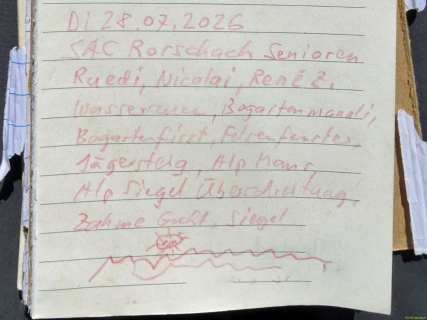 Di 28.07.2026
SAC Rorschach Senioren
Ruedi, Nicolai, René Z.
Wasserauen, Bogartenmannli,
Bogartenfirst, Felsenfenster,
Jägersteig, Alp Mans,
Alp Siegel Überschreitung,
Zahme Gocht, Siegel